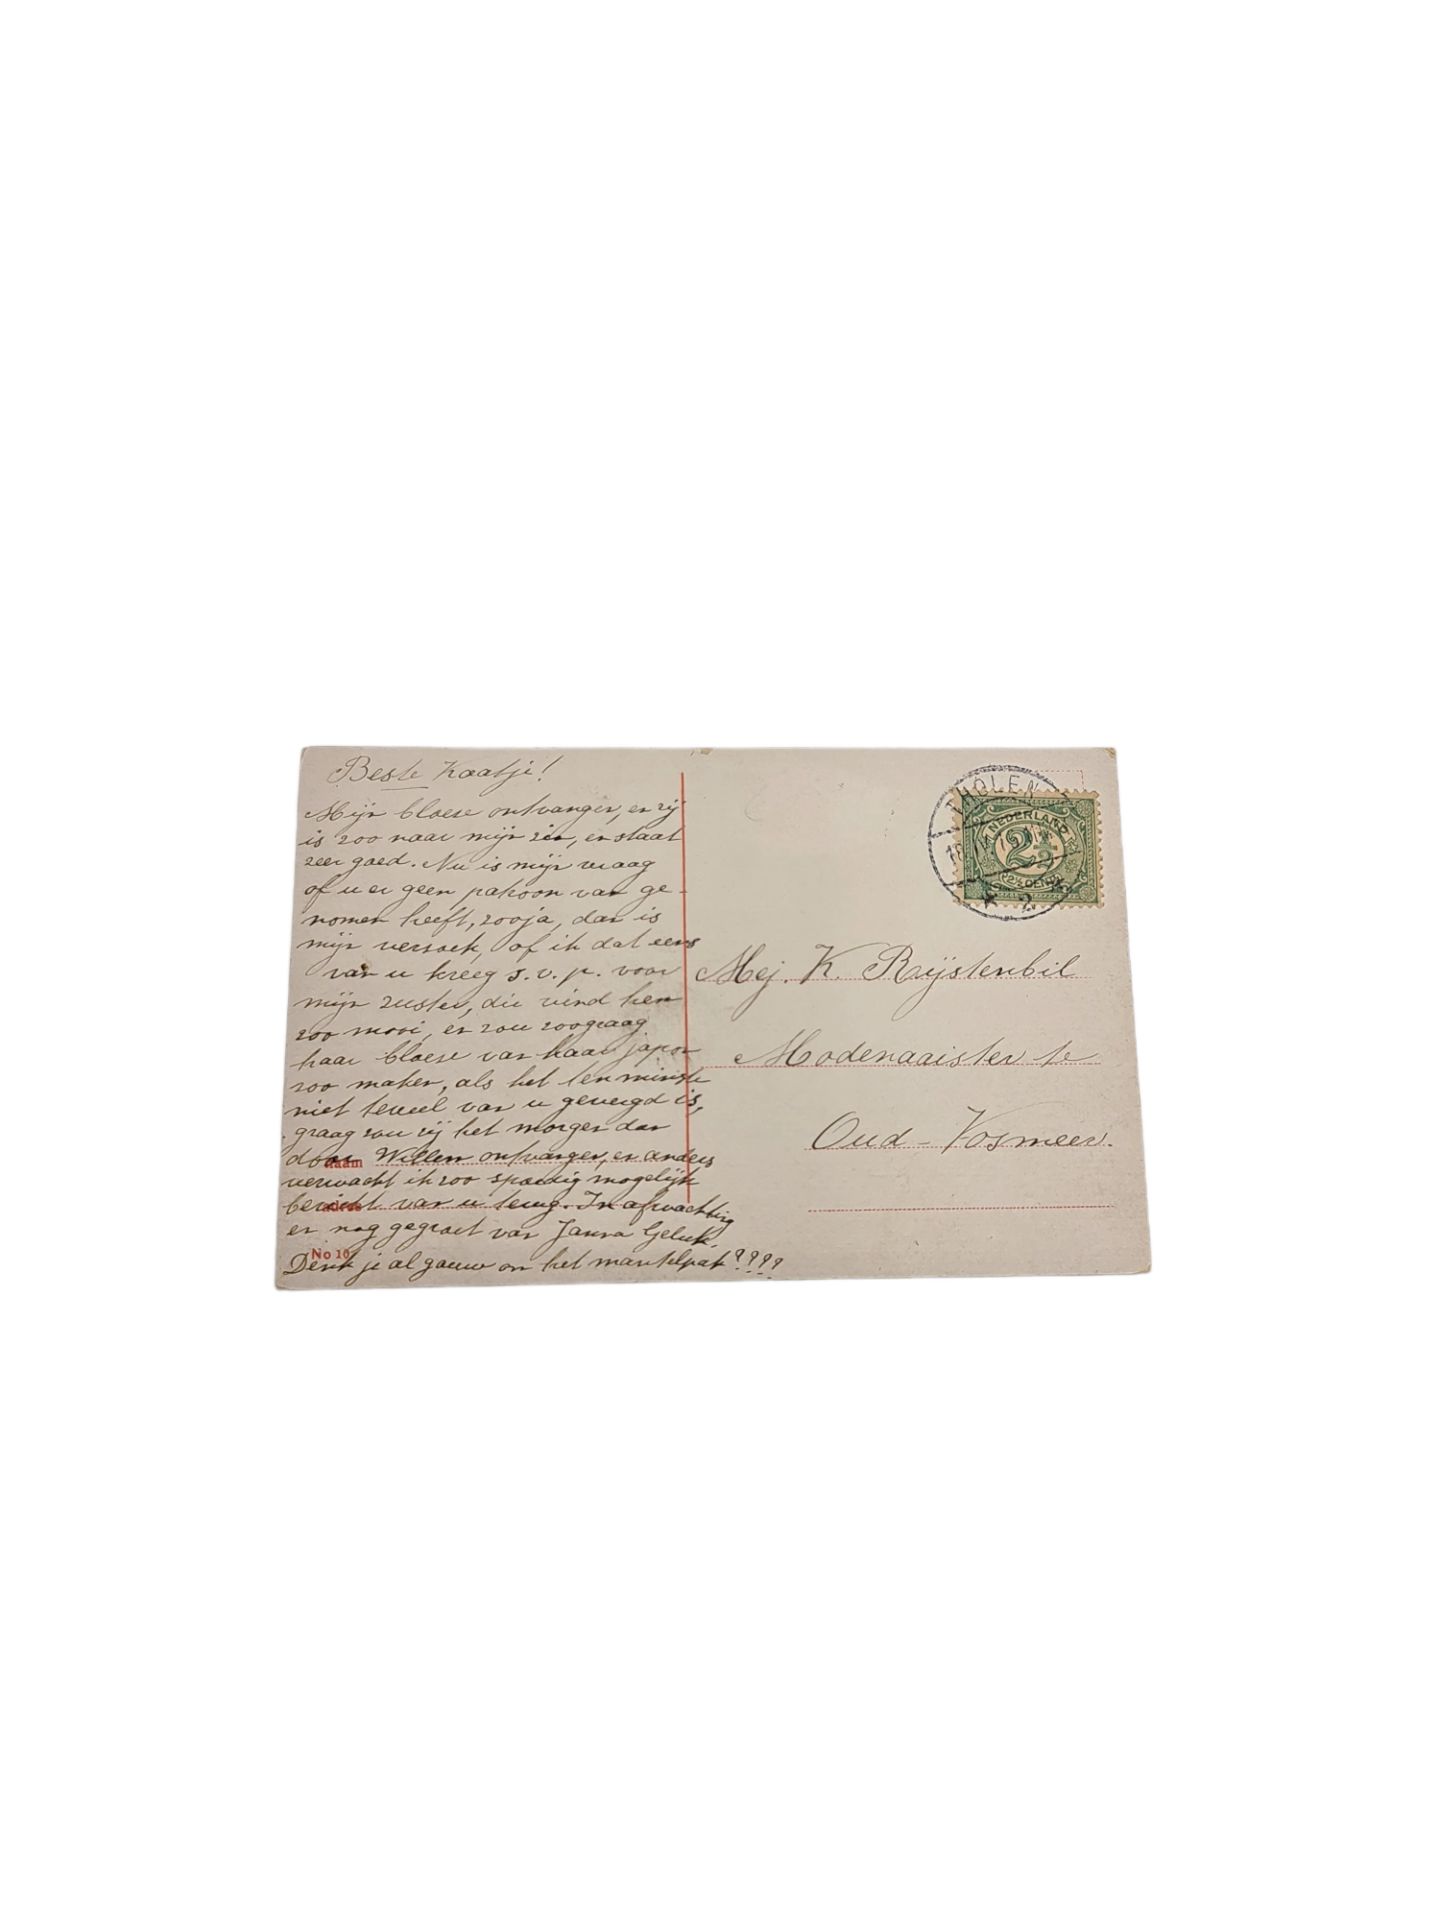 Beste Kaatje!
Mijn bloese ontvangen, en zij
is zoo naar mijn zin, en staat
zeer goed. Nu is mijn vraag
of u er geen patroon van ge-
nomen heeft, zooja, dan is
mijn verzoek, of ik dat eens
van u kreeg s.v.p. voor
mijn zuster, die vind hem
zoo mooi, en zou zoograag
haar bloese van haar japon
zoo maken, als het ten minste
niet teveel van u gevergd is,
graag zou zij het morgen dan
door Willem ontvangen, en anders
verwacht ik zoo spoedig mogelijk
bericht van u terug. In afwachting
en nog gegroet van Janna Geluk.
Denk je al gauw om het mantelpak????
naam
adres
No 10
THOLEN
2
NEDERLAND
2½
2½ CENT
Mej. K. Rijstenbil
Modenaaister te
Oud-Vosmeer.